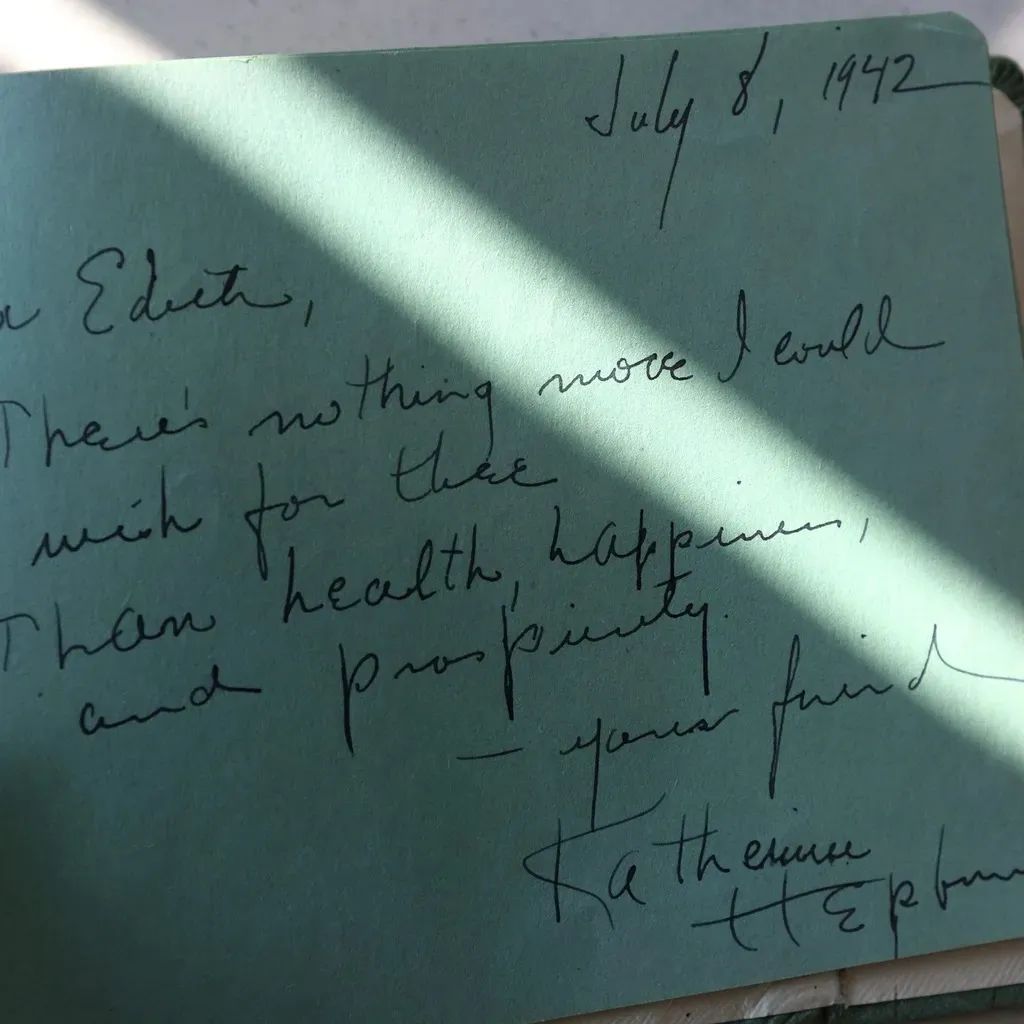 July 8, 1942
Edith,
There's nothing more I could
wish for thee
Than health, happiness,
and prosperity.
- your friend
Katherine
Hepburn